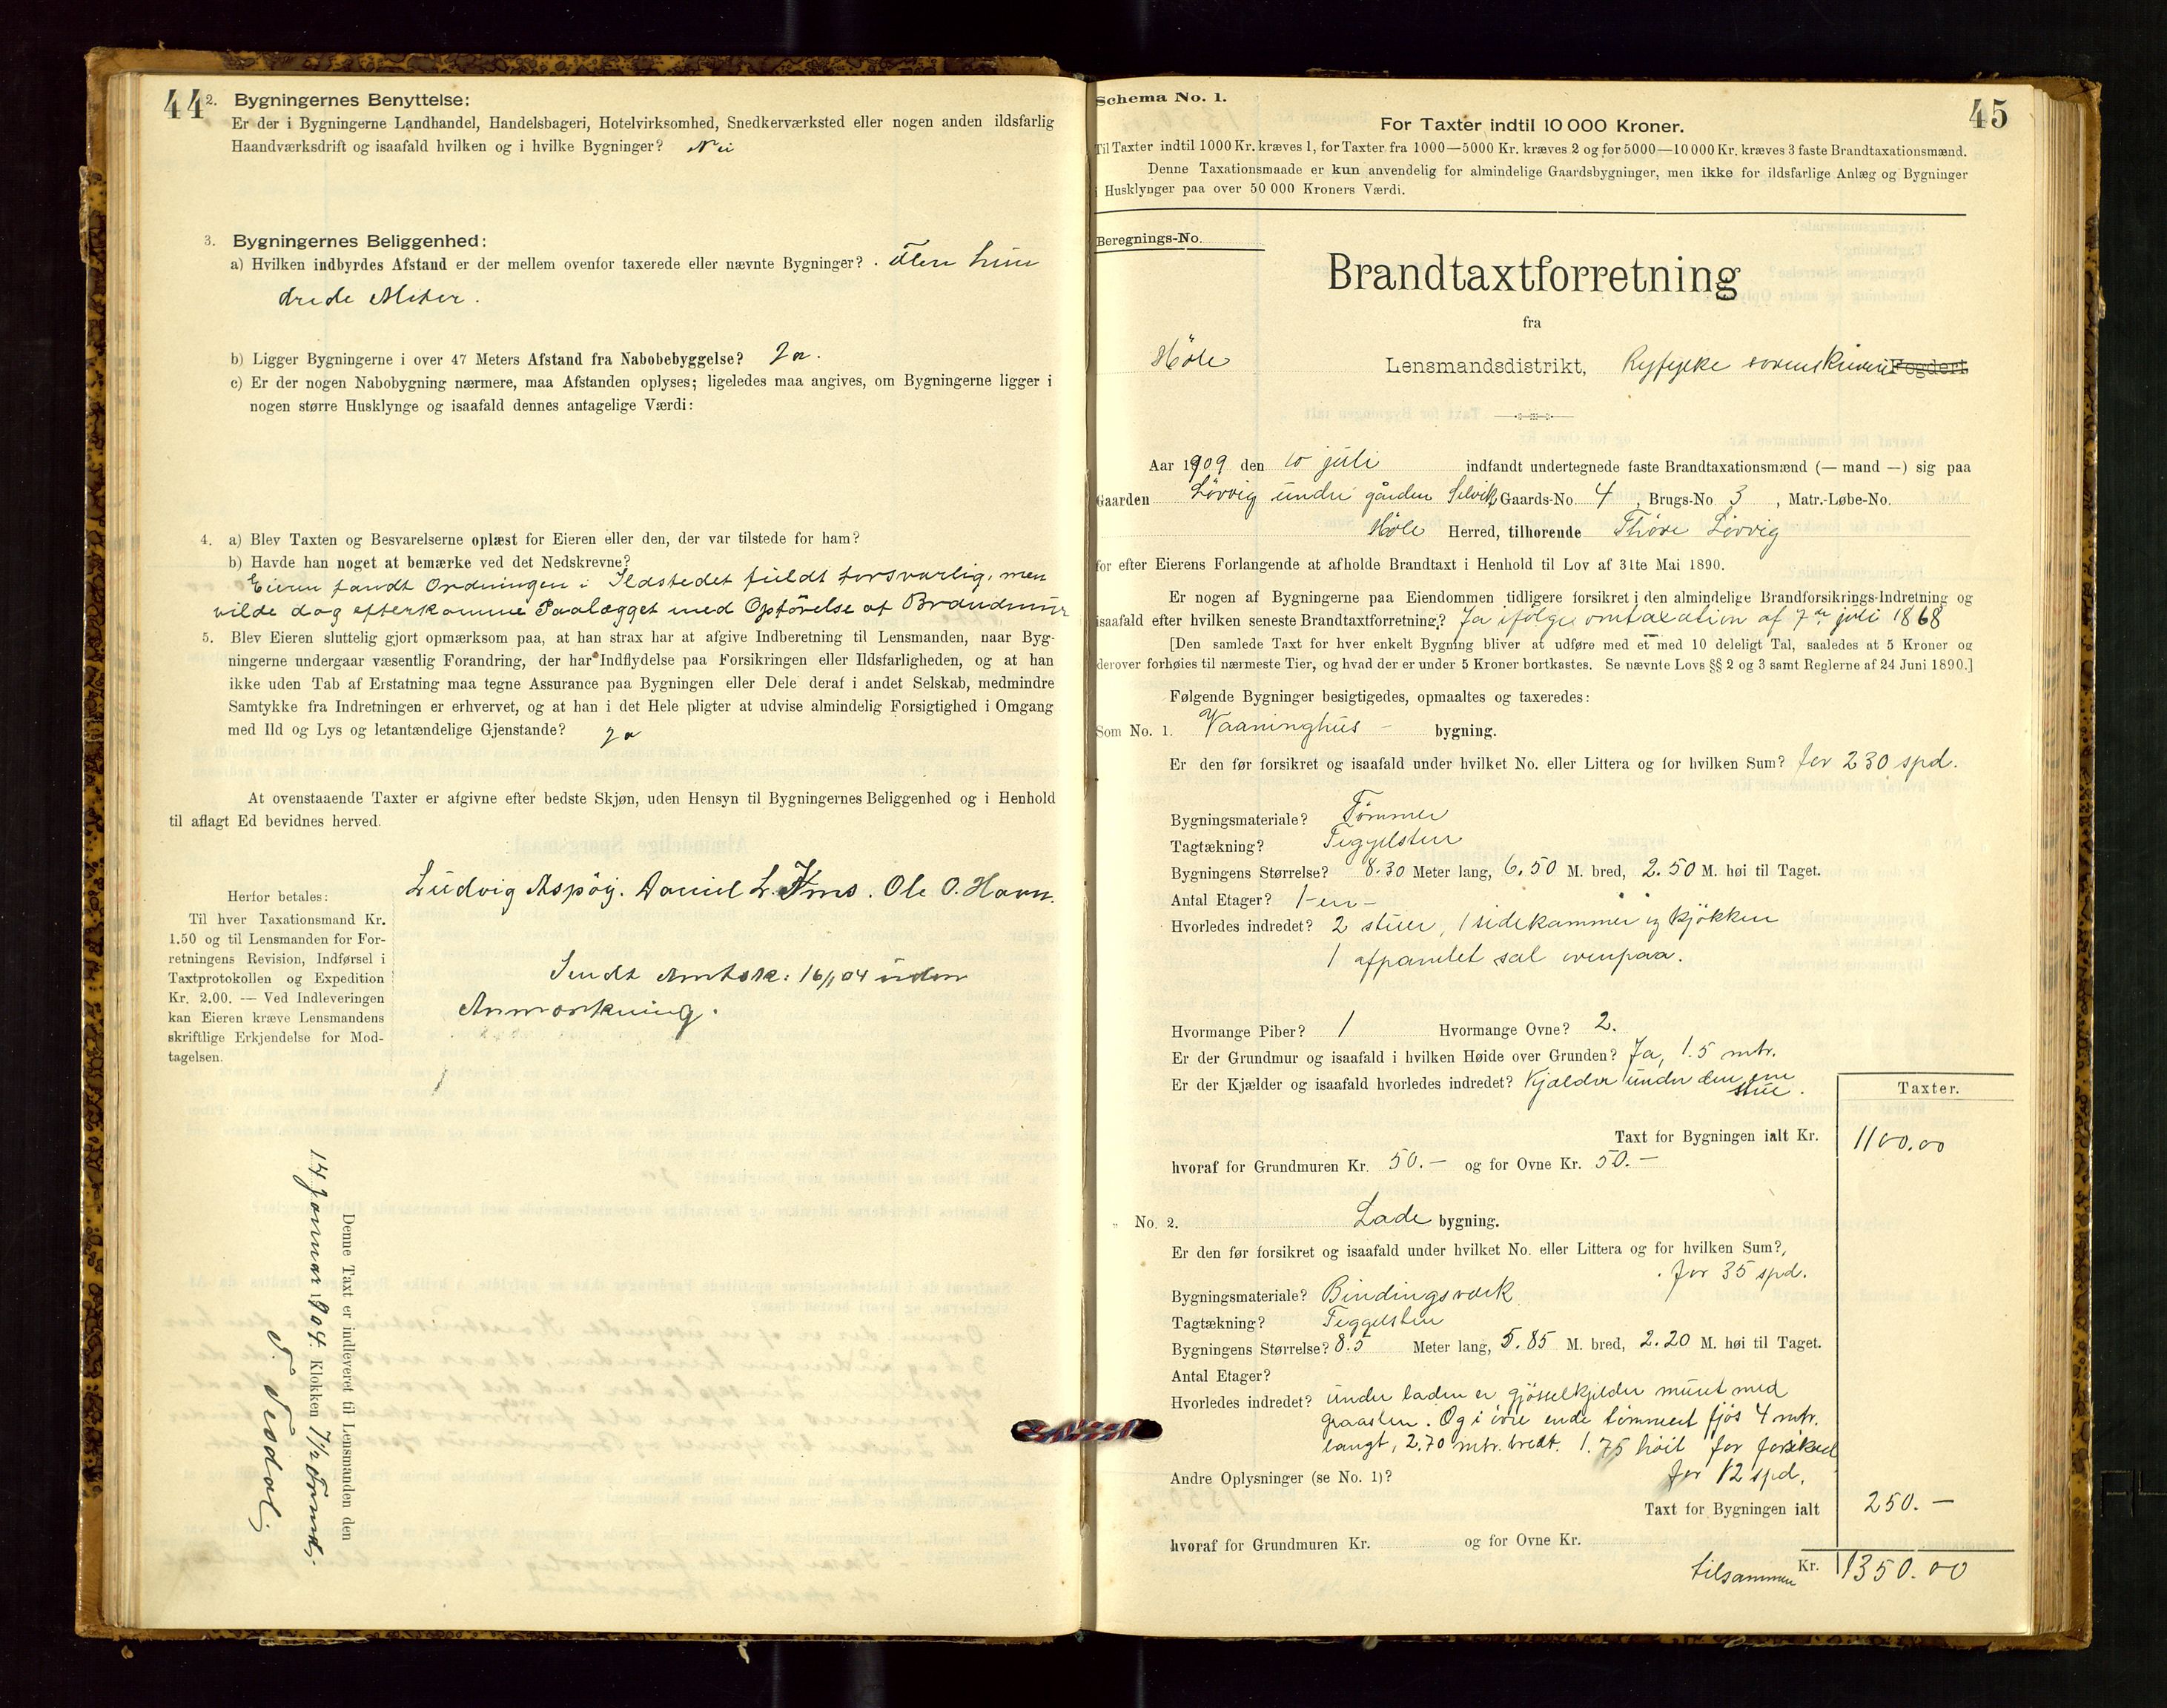 44
2. Bygningernes Benyttelse:
Er der i Bygningerne Landhandel, Handelsbageri, Hotelvirksomhed, Snedkerværksted eller nogen anden ildsfarlig
Haandværksdrift og isaafald hvilken og i hvilke Bygninger? Nei
3. Bygningernes Beliggenhed:
a) Hvilken indbyrdes Afstand er der mellem ovenfor taxerede eller nævnte Bygninger? . Flere hun
drede Meter.
b) Ligger Bygningerne i over 47 Meters Afstand fra Nabobebyggelse? Ja.
c) Er der nogen Nabobygning nærmere, maa Afstanden oplyses; ligeledes maa angives, om Bygningerne ligger i
nogen større Husklynge og isaafald dennes antagelige Værdi:
4. a) Blev Taxten og Besvarelserne oplæst for Eieren eller den, der var tilstede for ham?
b) Havde han noget at bemærke ved det Nedskrevne?
Eieren fandt Ordningen i Ildstedet fuldt forsvarlig, men
vilde dog efterkomme Paalægget med Opførelse af Brandmur
5. Blev Eieren sluttelig gjort opmærksom paa, at han strax har at afgive Indberetning til Lensmanden, naar Byg-
ningerne undergaar væsentlig Forandring, der har Indflydelse paa Forsikringen eller Ildsfarligheden, og at han
ikke uden Tab af Erstatning maa tegne Assurance paa Bygningen eller Dele deraf i andet Selskab, medmindre
Samtykke fra Indretningen er erhvervet, og at han i det Hele pligter at udvise almindelig Forsigtighed i Omgang
med Ild og Lys og letantændelige Gjenstande? Ja
At ovenstaaende Taxter er afgivne efter bedste Skjøn, uden Hensyn til Bygningernes Beliggenhed og i Henhold
til aflagt Ed bevidnes herved.
Ludvig Aspøy. Daniel L. Ims. Ole O. Havn.
Herfor betales:
Til hver Taxationsmand Kr.
1.50 og til Lensmanden for For-
retningens Revision, Indførsel i
Taxtprotokollen og Expedition
Kr. 2.00. — Ved Indleveringen
kan Eieren kræve Lensmandens
skriftlige Erkjendelse for Mod-
tagelsen.
Sendt Amtsk: 16/1 04 uden
Anmærkning.
Denne Taxt er indleveret til Lensmanden den
14 Januar 1904. Klokken 7 1/2 Formd.
T. Tesdal.
45
Schema No. 1.
For Taxter indtil 10 000 Kroner.
Til Taxter indtil 1000 Kr. kræves 1, for Taxter fra 1000—5000 Kr. kræves 2 og for 5000—10 000 Kr. kræves 3 faste Brandtaxationsmænd.
Denne Taxationsmaade er kun anvendelig for almindelige Gaardsbygninger, men ikke for ildsfarlige Anlæg og Bygninger
i Husklynger paa over 50 000 Kroners Værdi.
Beregnings-No.
Brandtaxtforretning
fra
Høle Lensmandsdistrikt, Ryfylke sorenskriveri Fogderi.
Aar 1909 den 10 juli indfandt undertegnede faste Brandtaxationsmænd (— mand —) sig paa
Gaarden Løvvig under gården Selvik Gaards-No. 4, Brugs-No 3, Matr.-Løbe-No.
Høle Herred, tilhørende Thore Løvvig
for efter Eierens Forlangende at afholde Brandtaxt i Henhold til Lov af 31te Mai 1890.
Er nogen af Bygningerne paa Eiendommen tidligere forsikret i den almindelige Brandforsikrings-Indretning og
isaafald efter hvilken seneste Brandtaxtforretning? Ja ifølge omtaxation af 7de juli 1868
[Den samlede Taxt for hver enkelt Bygning bliver at udføre med et med 10 deleligt Tal, saaledes at 5 Kroner og
derover forhøies til nærmeste Tier, og hvad der er under 5 Kroner bortkastes. Se nævnte Lovs §§ 2 og 3 samt Reglerne af 24 Juni 1890.]
Følgende Bygninger besigtigedes, opmaaltes og taxeredes:
Som No. 1. Vaaninghus - bygning.
Er den før forsikret og isaafald under hvilket No. eller Littera og for hvilken Sum? for 230 spd.
Bygningsmateriale? Tømmer
Tagtækning? Teggelsten
Bygningens Størrelse? 8.30 Meter lang, 6.50 M. bred, 2.50 M. høi til Taget.
Antal Etager? 1-en-
Hvorledes indredet? 2 stuer, 1 sidekammer og kjøkken
1 afpanelet sal ovenpaa.
Hvormange Piber? 1 Hvormange Ovne? 2.
Er der Grundmur og isaafald i hvilken Høide over Grunden? Ja, 1.5 mtr.
Er der Kjælder og isaafald hvorledes indredet? Kjælder under den ene
stue.
Taxter.
Taxt for Bygningen ialt Kr. 1100.00
hvoraf for Grundmuren Kr. 50.- og for Ovne Kr. 50.-
" No. 2. Lade bygning.
Er den før forsikret og isaafald under hvilket No. eller Littera og for hvilken Sum?,
for 35 spd.
Bygningsmateriale? Bindingsværk
Tagtækning? Teggelsten
Bygningens Størrelse? 8.5 Meter lang, 5.85 M. bred, 2.20 M. høi til Taget.
Antal Etager?
Hvorledes indredet? under laden er gjødselkjelder muret med
graasten. Og i øvre ende tømmeret fjøs 4 mtr.
langt, 2.70 mtr. bredt. 1.75 høit før forsikred
for 12 spd.
Andre Oplysninger (se No. 1)?
Taxt for Bygningen ialt 250.-
hvoraf for Grundmuren Kr. og for Ovne Kr.
tilsammen Kr. 1350.00